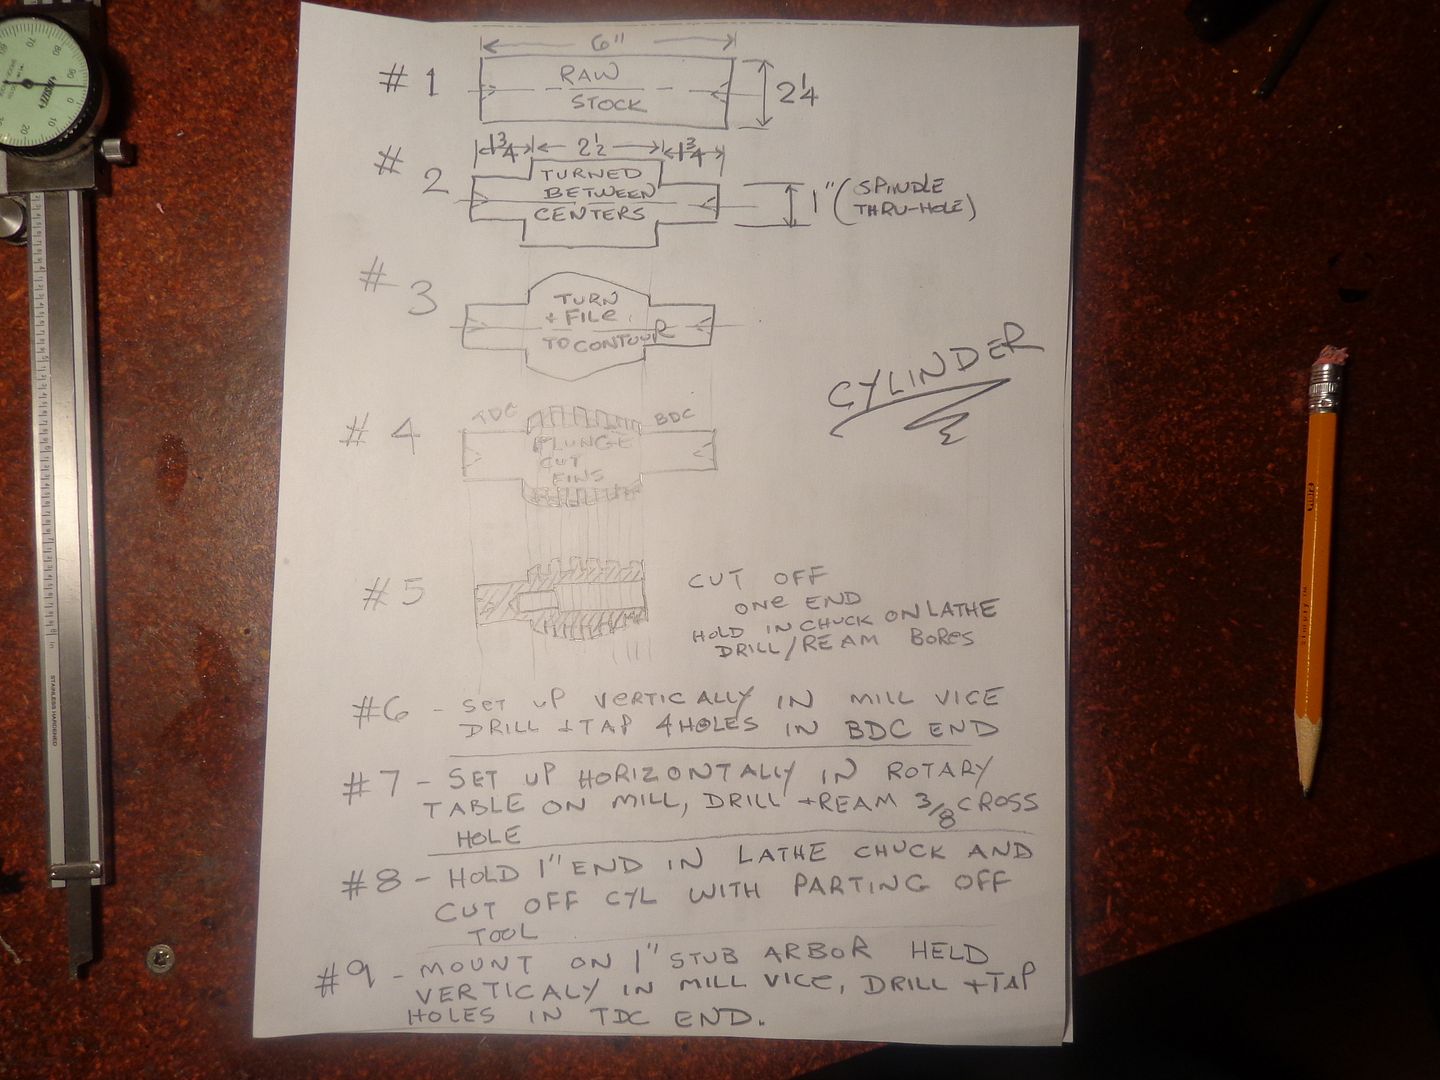 6"
#1
RAW
STOCK
2 1/4
1 3/4
2 1/2
1 3/4
#2
TURNED
BETWEEN
CENTERS
1" (SPINDLE
THRU-HOLE)
#3
TURN
+ FILE
TO CONTOUR
CYLINDER
#4
TDC
BDC
PLUNGE
CUT
FINS
#5
CUT OFF
ONE END
HOLD IN CHUCK ON LATHE
DRILL/REAM BORES
#6 - SET UP VERTICALLY IN MILL VICE
DRILL + TAP 4 HOLES IN BDC END
#7 - SET UP HORIZONTALLY IN ROTARY
TABLE ON MILL, DRILL + REAM 3/8 CROSS
HOLE
#8 - HOLD 1" END IN LATHE CHUCK AND
CUT OFF CYL WITH PARTING OFF
TOOL
#9 - MOUNT ON 1" STUB ARBOR HELD
VERTICALY IN MILL VICE, DRILL + TAP
HOLES IN TDC END.
STAINLESS HARDENED